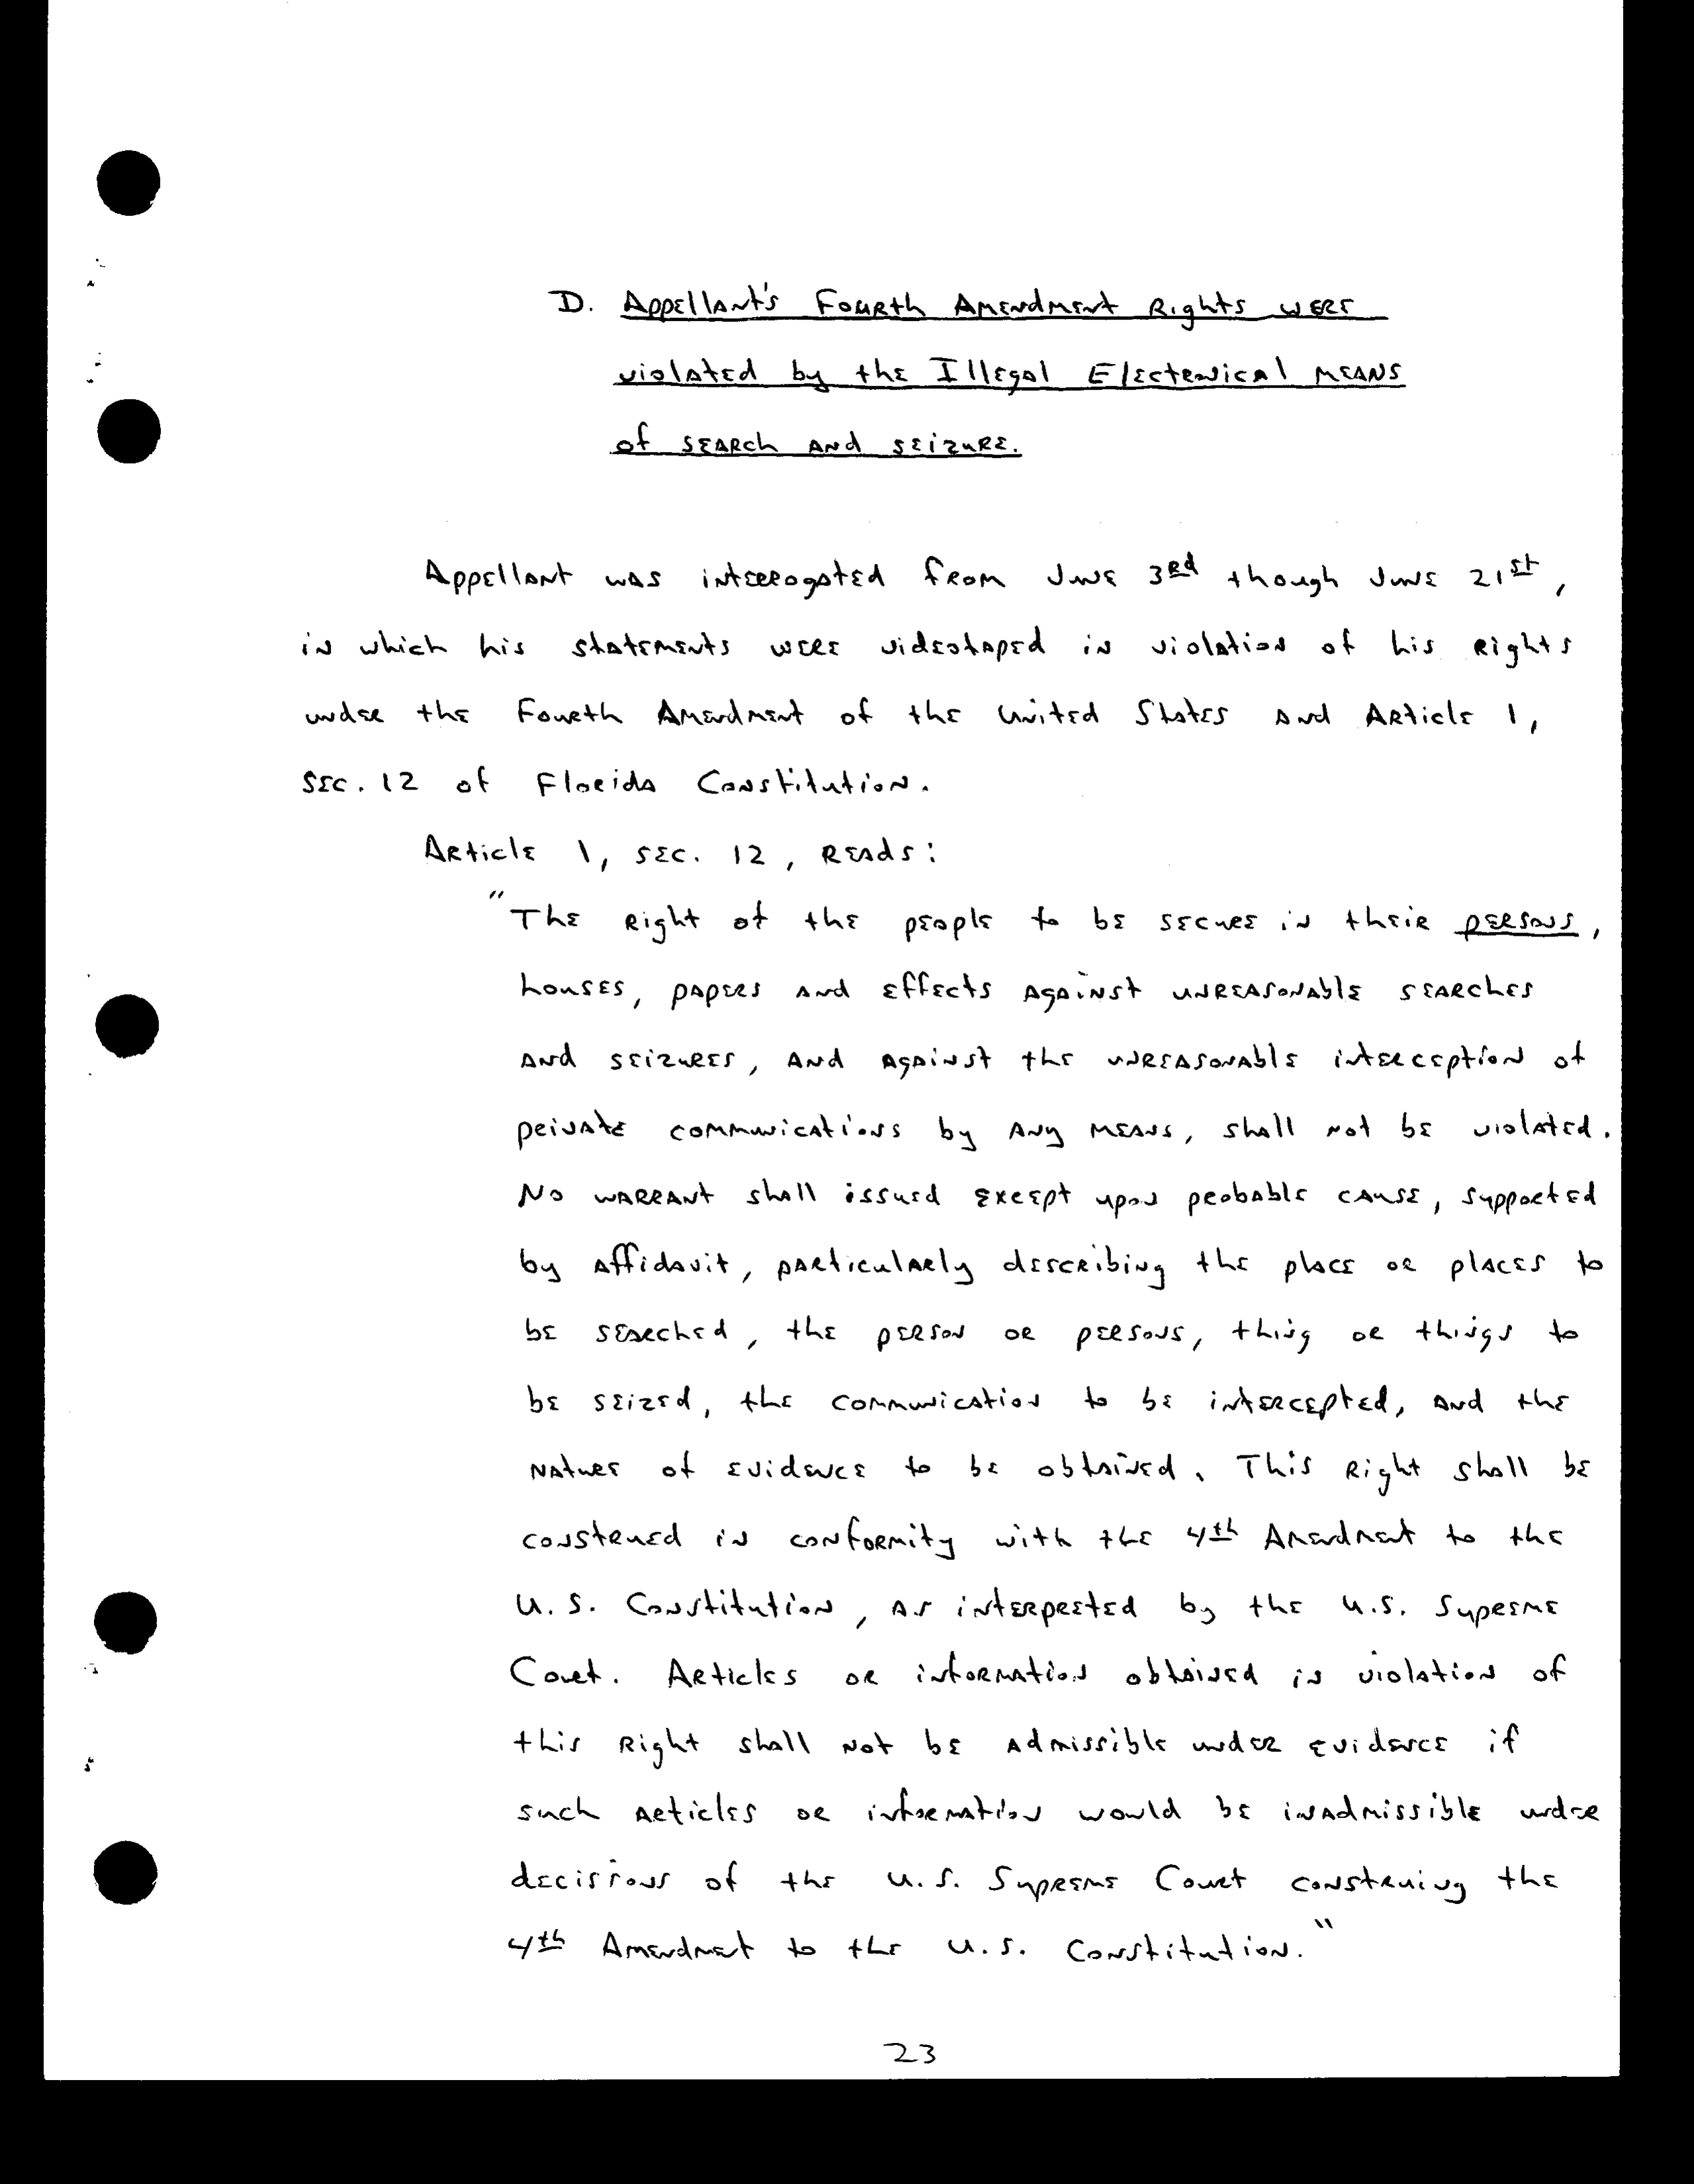 D. Appellant's Fourth Amendment Rights were
violated by the Illegal Electronical means
of search and seizure.
Appellant was interrogated from June 3rd though June 21st,
in which his statements were videotaped in violation of his rights
under the Fourth Amendment of the United States and Article 1,
Sec. 12 of Florida Constitution.
Article 1, sec. 12, reads:
"The right of the people to be secure in their persons,
houses, papers and effects against unreasonable searches
and seizures, and against the unreasonable interception of
private communications by any means, shall not be violated.
No warrant shall issued except upon probable cause, supported
by affidavit, particularly describing the place or places to
be searched, the person or persons, thing or things to
be seized, the communication to be intercepted, and the
nature of evidence to be obtained. This right shall be
construed in conformity with the 4th Amendment to the
U.S. Constitution, as interpreted by the U.S. Supreme
Court. Articles or information obtained in violation of
this right shall not be admissible under evidence if
such articles or information would be inadmissible under
decisions of the U.S. Supreme Court construing the
4th Amendment to the U.S. Constitution."
23